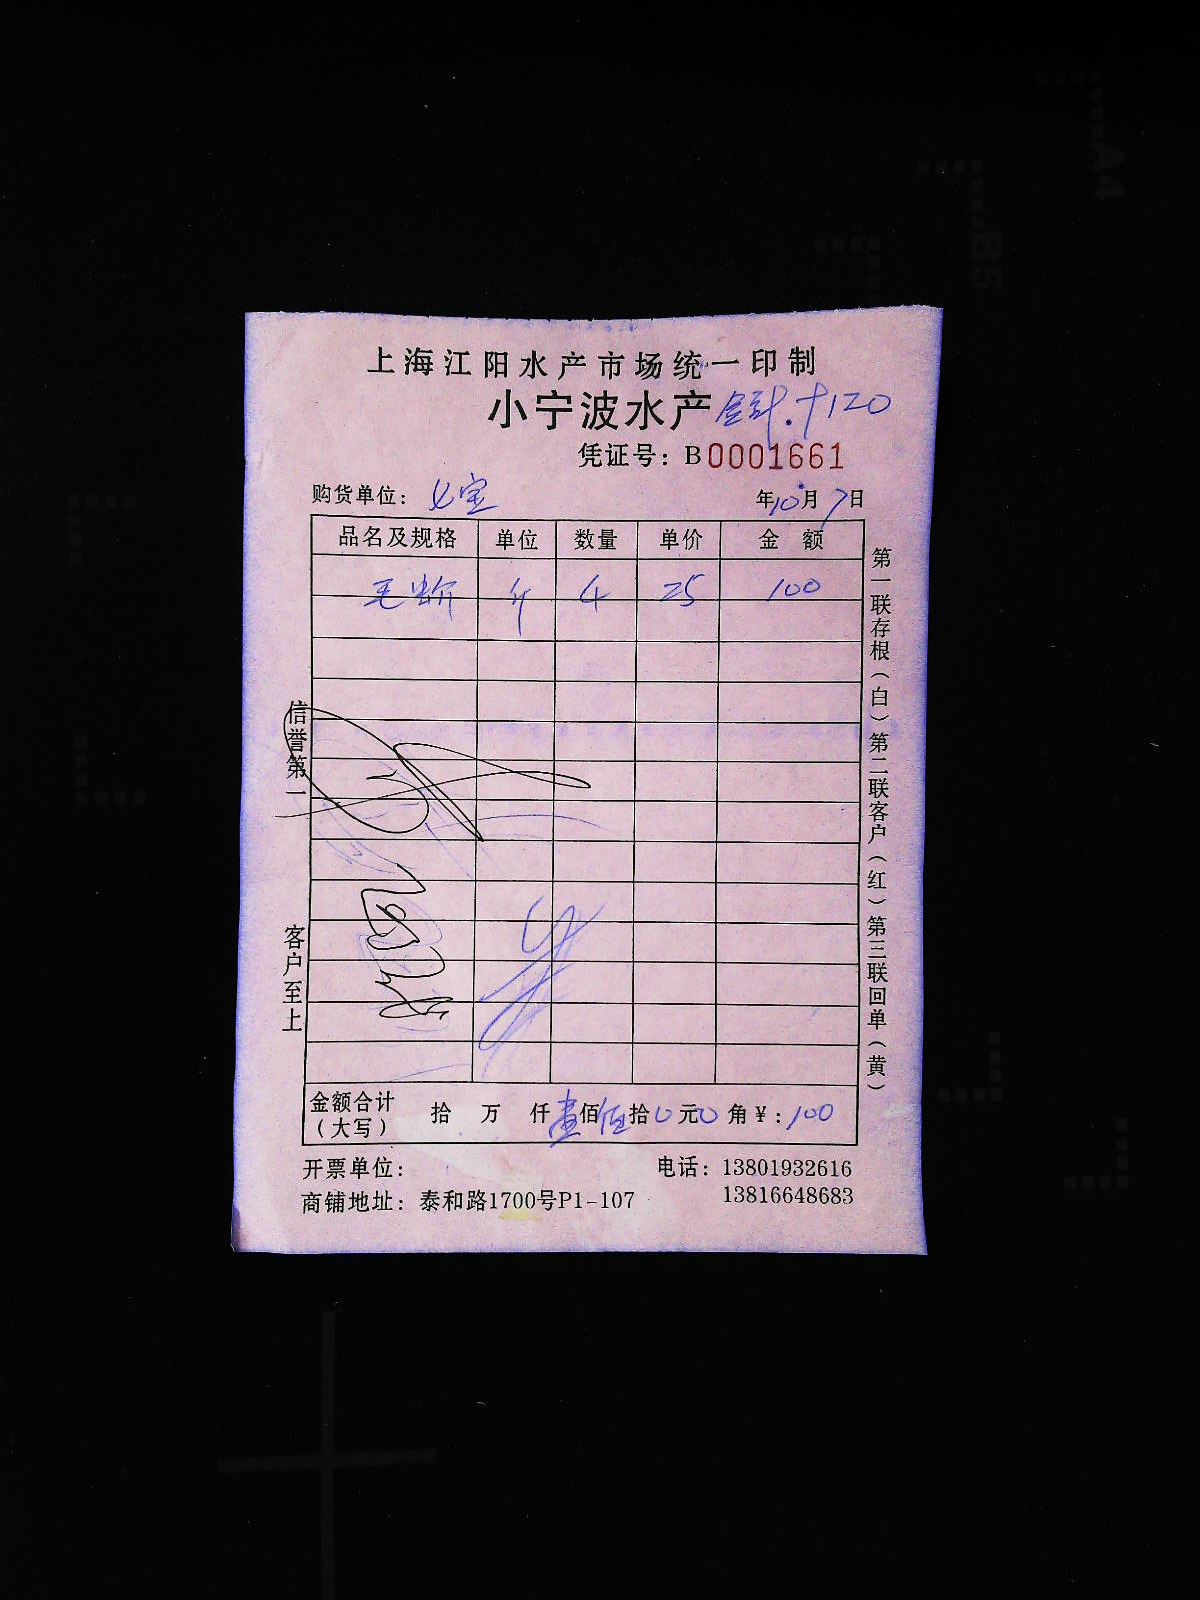 上海江阳水产市场统一印制
小宁波水产
凭证号：B0001661
购货单位： 年10月7日
品名及规格 单位 数量 单价 金额
毛蚶 斤 4 25 100
信誉第一
客户至上
第一联存根（白）第二联客户（红）第三联回单（黄）
金额合计（大写） 拾 万 仟壹佰 拾0元0角￥：100
开票单位：
电话：13801932616
13816648683
商铺地址：泰和路1700号P1-107
A4
B5